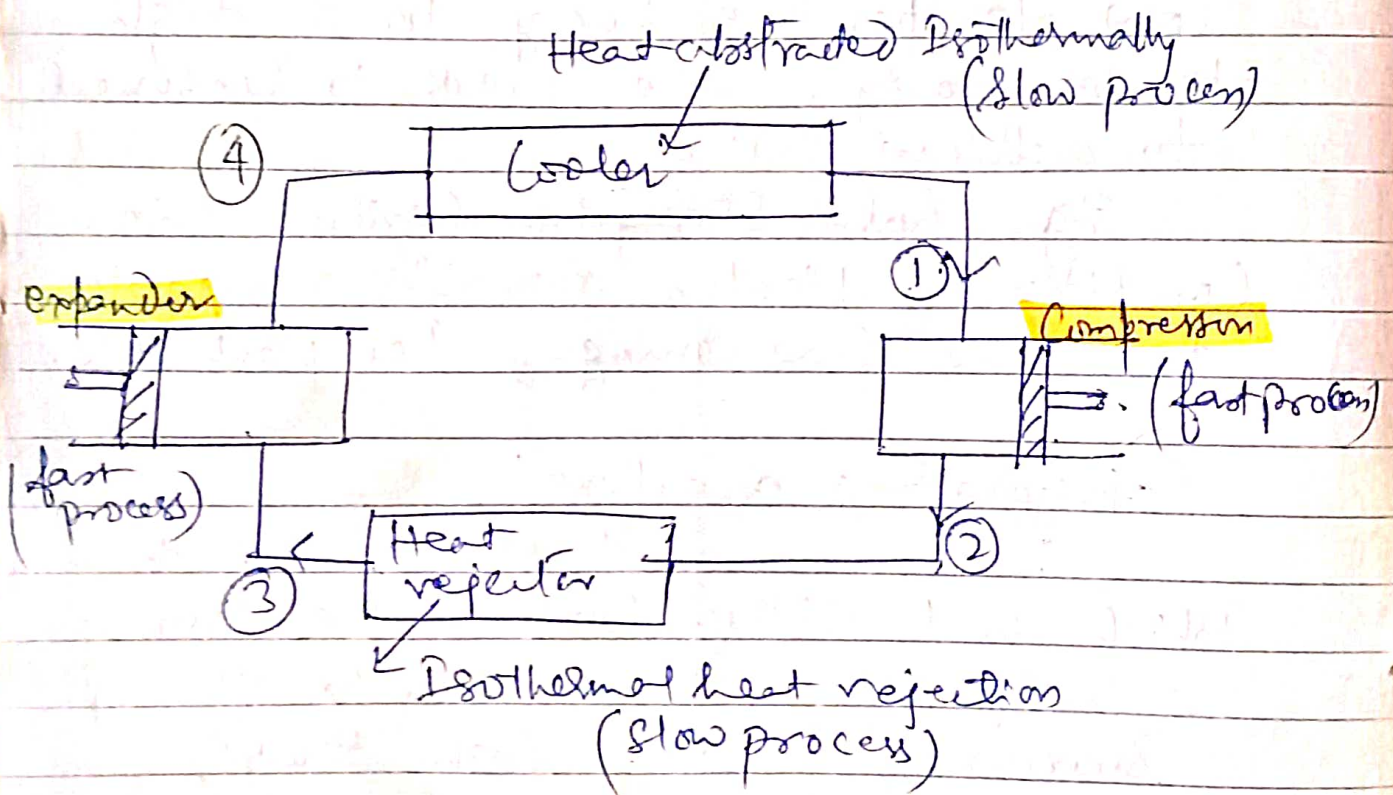 Heat abstracted Isothermally
(slow process)
④
Cooler
①
expander
Compressor
(fast process)
(fast
process)
Heat
rejector
②
③
Isothermal heat rejection
(slow process)